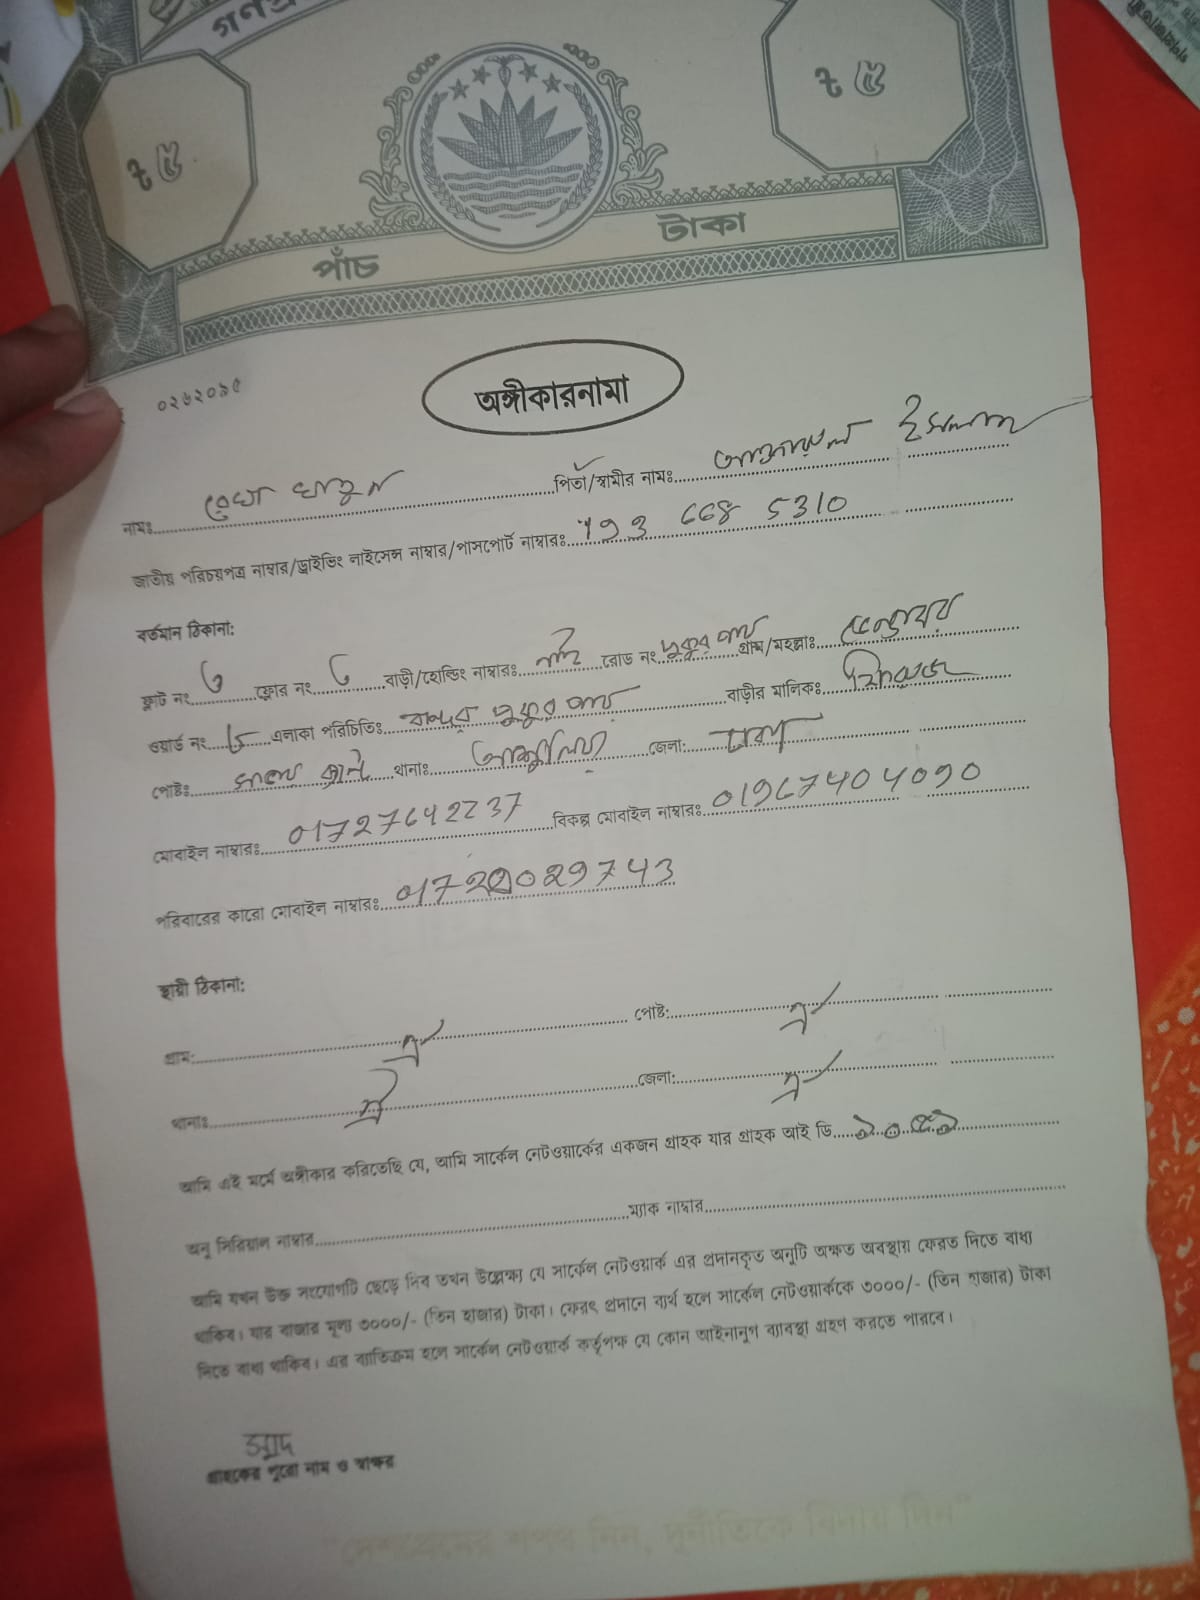 গণপ্র
৳ ৫
৳ ৫
পাঁচ টাকা
০২৬২০৯৫
অঙ্গীকারনামা
নামঃ রেখা খাতুন পিতা/স্বামীর নামঃ ইসলাম
জাতীয় পরিচয়পত্র নাম্বার/ড্রাইভিং লাইসেন্স নাম্বার/পাসপোর্ট নাম্বারঃ 193 668 5310
বর্তমান ঠিকানা:
ফ্লাট নং ফ্লোর নং বাড়ী/হোল্ডিং নাম্বারঃ নাই রোড নং পুকুর পাড় গ্রাম/মহল্লাঃ
ওয়ার্ড নং এলাকা পরিচিতিঃ পুকুর পাড় বাড়ীর মালিকঃ
পোষ্টঃ থানাঃ আশুলিয়া জেলা: ঢাকা
মোবাইল নাম্বারঃ 01727642237 বিকল্প মোবাইল নাম্বারঃ
পরিবারের কারো মোবাইল নাম্বারঃ
স্থায়ী ঠিকানা:
গ্রাম: ঐ পোষ্ট: ঐ
থানাঃ ঐ জেলা: ঐ
আমি এই মর্মে অঙ্গীকার করিতেছি যে, আমি সার্কেল নেটওয়ার্কের একজন গ্রাহক যার গ্রাহক আই ডি ১০৫১
অনু সিরিয়াল নাম্বার ম্যাক নাম্বার
আমি যখন উক্ত সংযোগটি ছেড়ে দিব তখন উল্লেক্ষ্য যে সার্কেল নেটওয়ার্ক এর প্রদানকৃত অনুটি অক্ষত অবস্থায় ফেরত দিতে বাধ্য
থাকিব। যার বাজার মূল্য ৩০০০/- (তিন হাজার) টাকা। ফেরৎ প্রদানে ব্যর্থ হলে সার্কেল নেটওয়ার্ককে ৩০০০/- (তিন হাজার) টাকা
দিতে বাধ্য থাকিব। এর ব্যাতিক্রম হলে সার্কেল নেটওয়ার্ক কর্তৃপক্ষ যে কোন আইনানুগ ব্যাবস্থা গ্রহণ করতে পারবে।
গ্রাহকের পুরো নাম ও স্বাক্ষর
"দেশপ্রেমের শপথ নিন, দুর্নীতিকে বিদায় দিন"